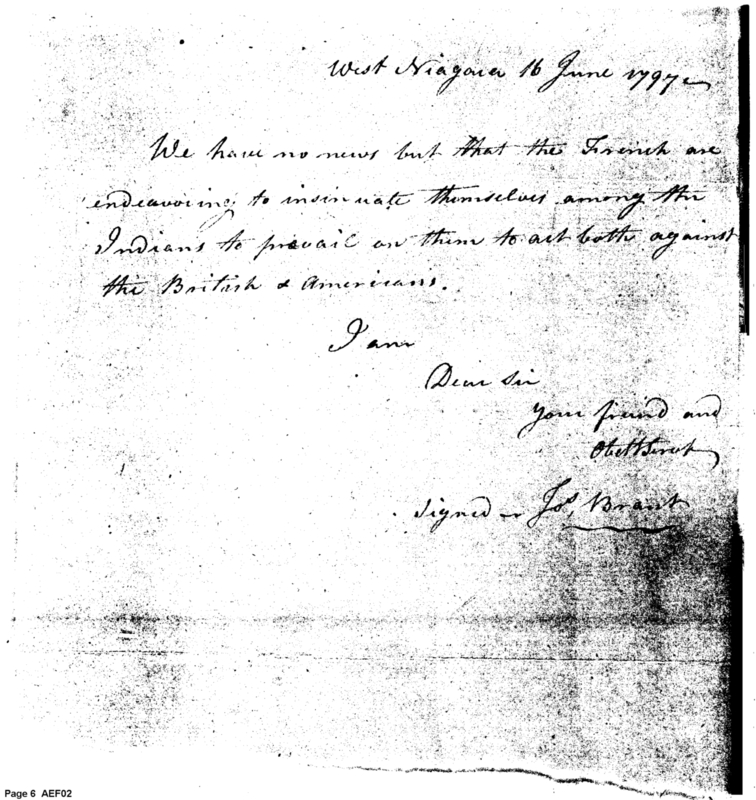 West Niagara 16 June 1797
We have no news but that the French are
endeavoring to insinuate themselves among the
Indians to prevail on them to act both against
the British & Americans.
I am
Dear Sir
your friend and
Obet Servt
Signed Jos, Brant
Page 6 AEF02